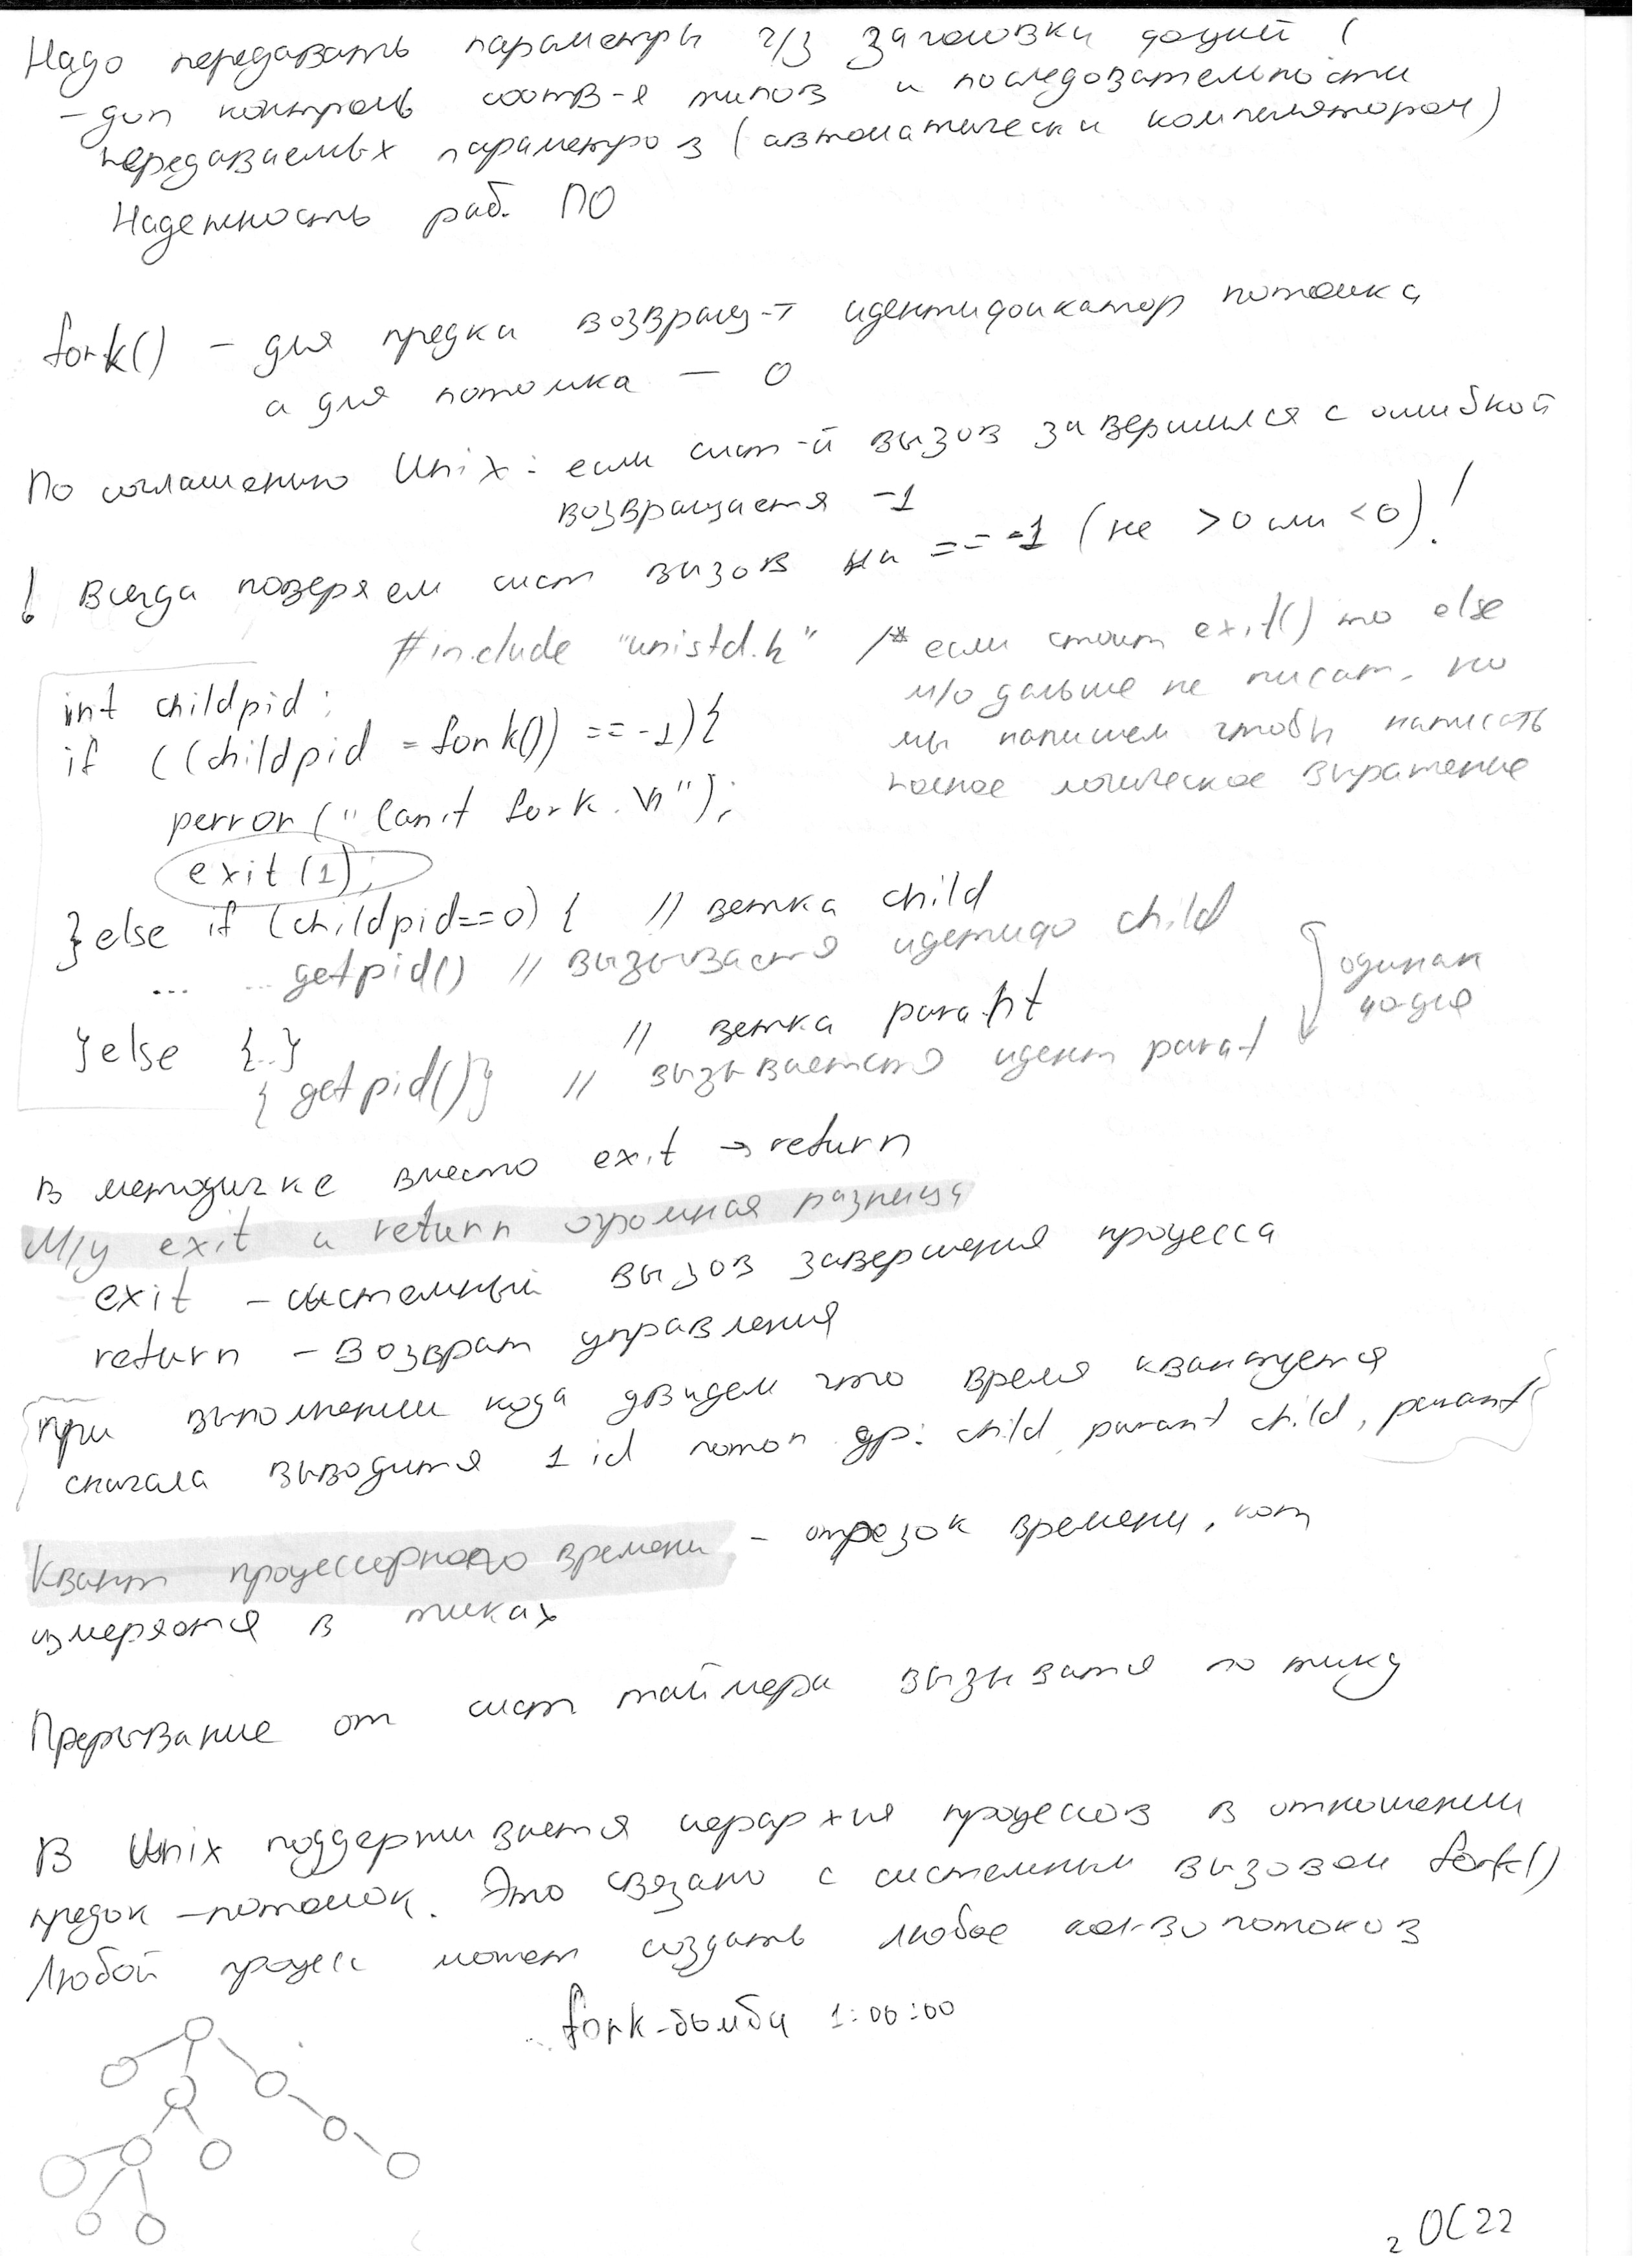 Надо передавать параметры ч/з заголовки функций (
- доп контроль соотв-я типов и последовательности
передаваемых параметров (автоматически компилятором)
Надежность раб. ПО
fork() - для предка возвращ-т идентификатор потомка
а для потомка - 0
По соглашению Unix: если сист-й вызов завершился с ошибкой
возвращается -1
! Всегда проверяем сист вызов на == -1 (не >0 или <0)!
#include "unistd.h" /* если стоит exit() то else
int childpid; м/о дальше не писат, но
if ((childpid = fork()) == -1){ мы напишем чтобы написать
perror("Can't fork.\n"); полное логическое выражение
exit(1);
}else if (childpid==0) { // ветка child
... ... getpid() // вызывается идентиф child
одинак
}else {..} // ветка parent
{getpid()} // вызывается идент parent
В методичке вместо exit → return
М/у exit и return огромная разница
exit - системный вызов завершения процесса
return - Возврат управления
При выполнении кода увидем что время квантуется
сначала выводится 1 id потом др: child, parant child, parant
Квант процессорного времени - отрезок времени, кот
измеряется в тиках
Прерывание от сист таймера вызывается по тику
В Unix поддерживается иерархия процессов в отношении
предок - потомок. Это связано с системным вызовом fork()
Любой процесс может создать любое кол-во потоков
fork-бомба 1:00:00
2 ОС22